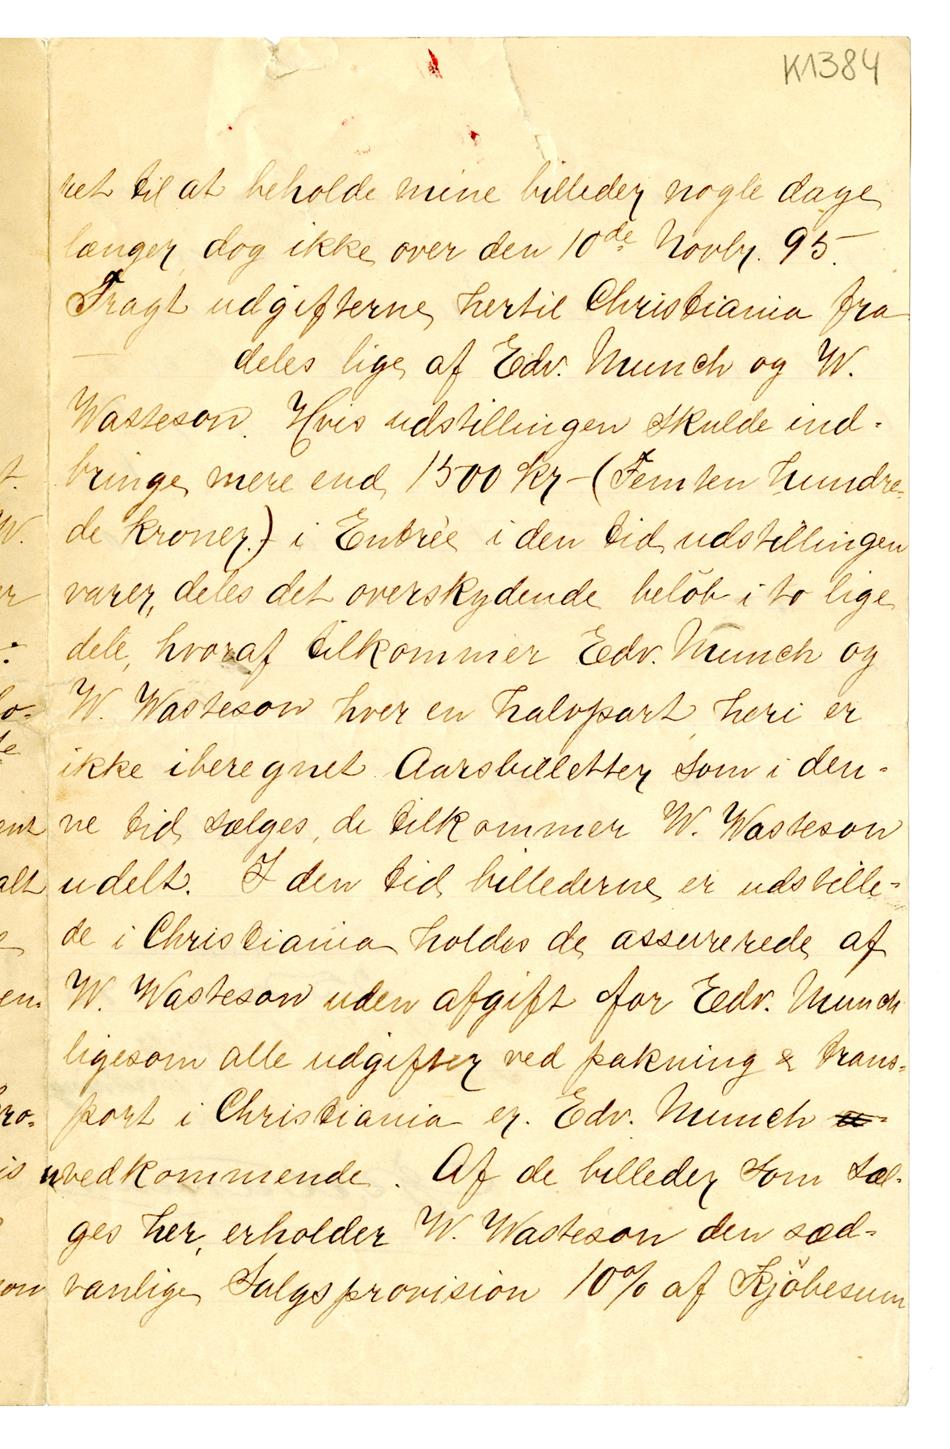 K1384
ret til at beholde mine billeder nogle dage
længer, dog ikke over den 10de Novbr. 95.
Fragt udgifterne hertil Christiania fra
— deles lige af Edv. Munch og W.
Wasteson. Hvis udstillingen skulde ind-
bringe mere end 1500 Kr – (Femten hundre-
de kroner.) i Entrée i den tid udstillingen
varer, deles det overskydende belöb i to lige
dele, hvoraf tilkommer Edv. Munch og
W. Wasteson hver en halvpart, heri er
ikke iberegnet Aarsbilletter som i den-
ne tid sælges, de tilkommer W. Wasteson
udelt. I den tid billederne er udstille-
de i Christiania holdes de assurerede af
W. Wasteson uden afgift for Edv. Munch
ligesom alle udgifter ved pakning & trans-
port i Christiania er. Edv. Munch u-
uvedkommende. Af de billeder som sæl-
ges her, erholder W. Wasteson den sæd-
vanlige Salgsprovision 10% af Kjöbesum